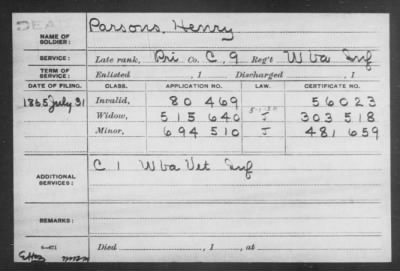 DEAD
NAME OF SOLDIER: Parsons, Henry
SERVICE: Late rank, Pri Co. C, 9 Reg't W Va Inf
TERM OF SERVICE: Enlisted , 1 Discharged , 1
DATE OF FILING. CLASS. APPLICATION NO. LAW. CERTIFICATE NO.
1865 July 31 Invalid, 80 469 56023
Widow, 515 640 J 303 518
Minor, 694 510 J 481 659
ADDITIONAL SERVICES: C 1 W Va Vet Inf
REMARKS:
Died , 1 , at